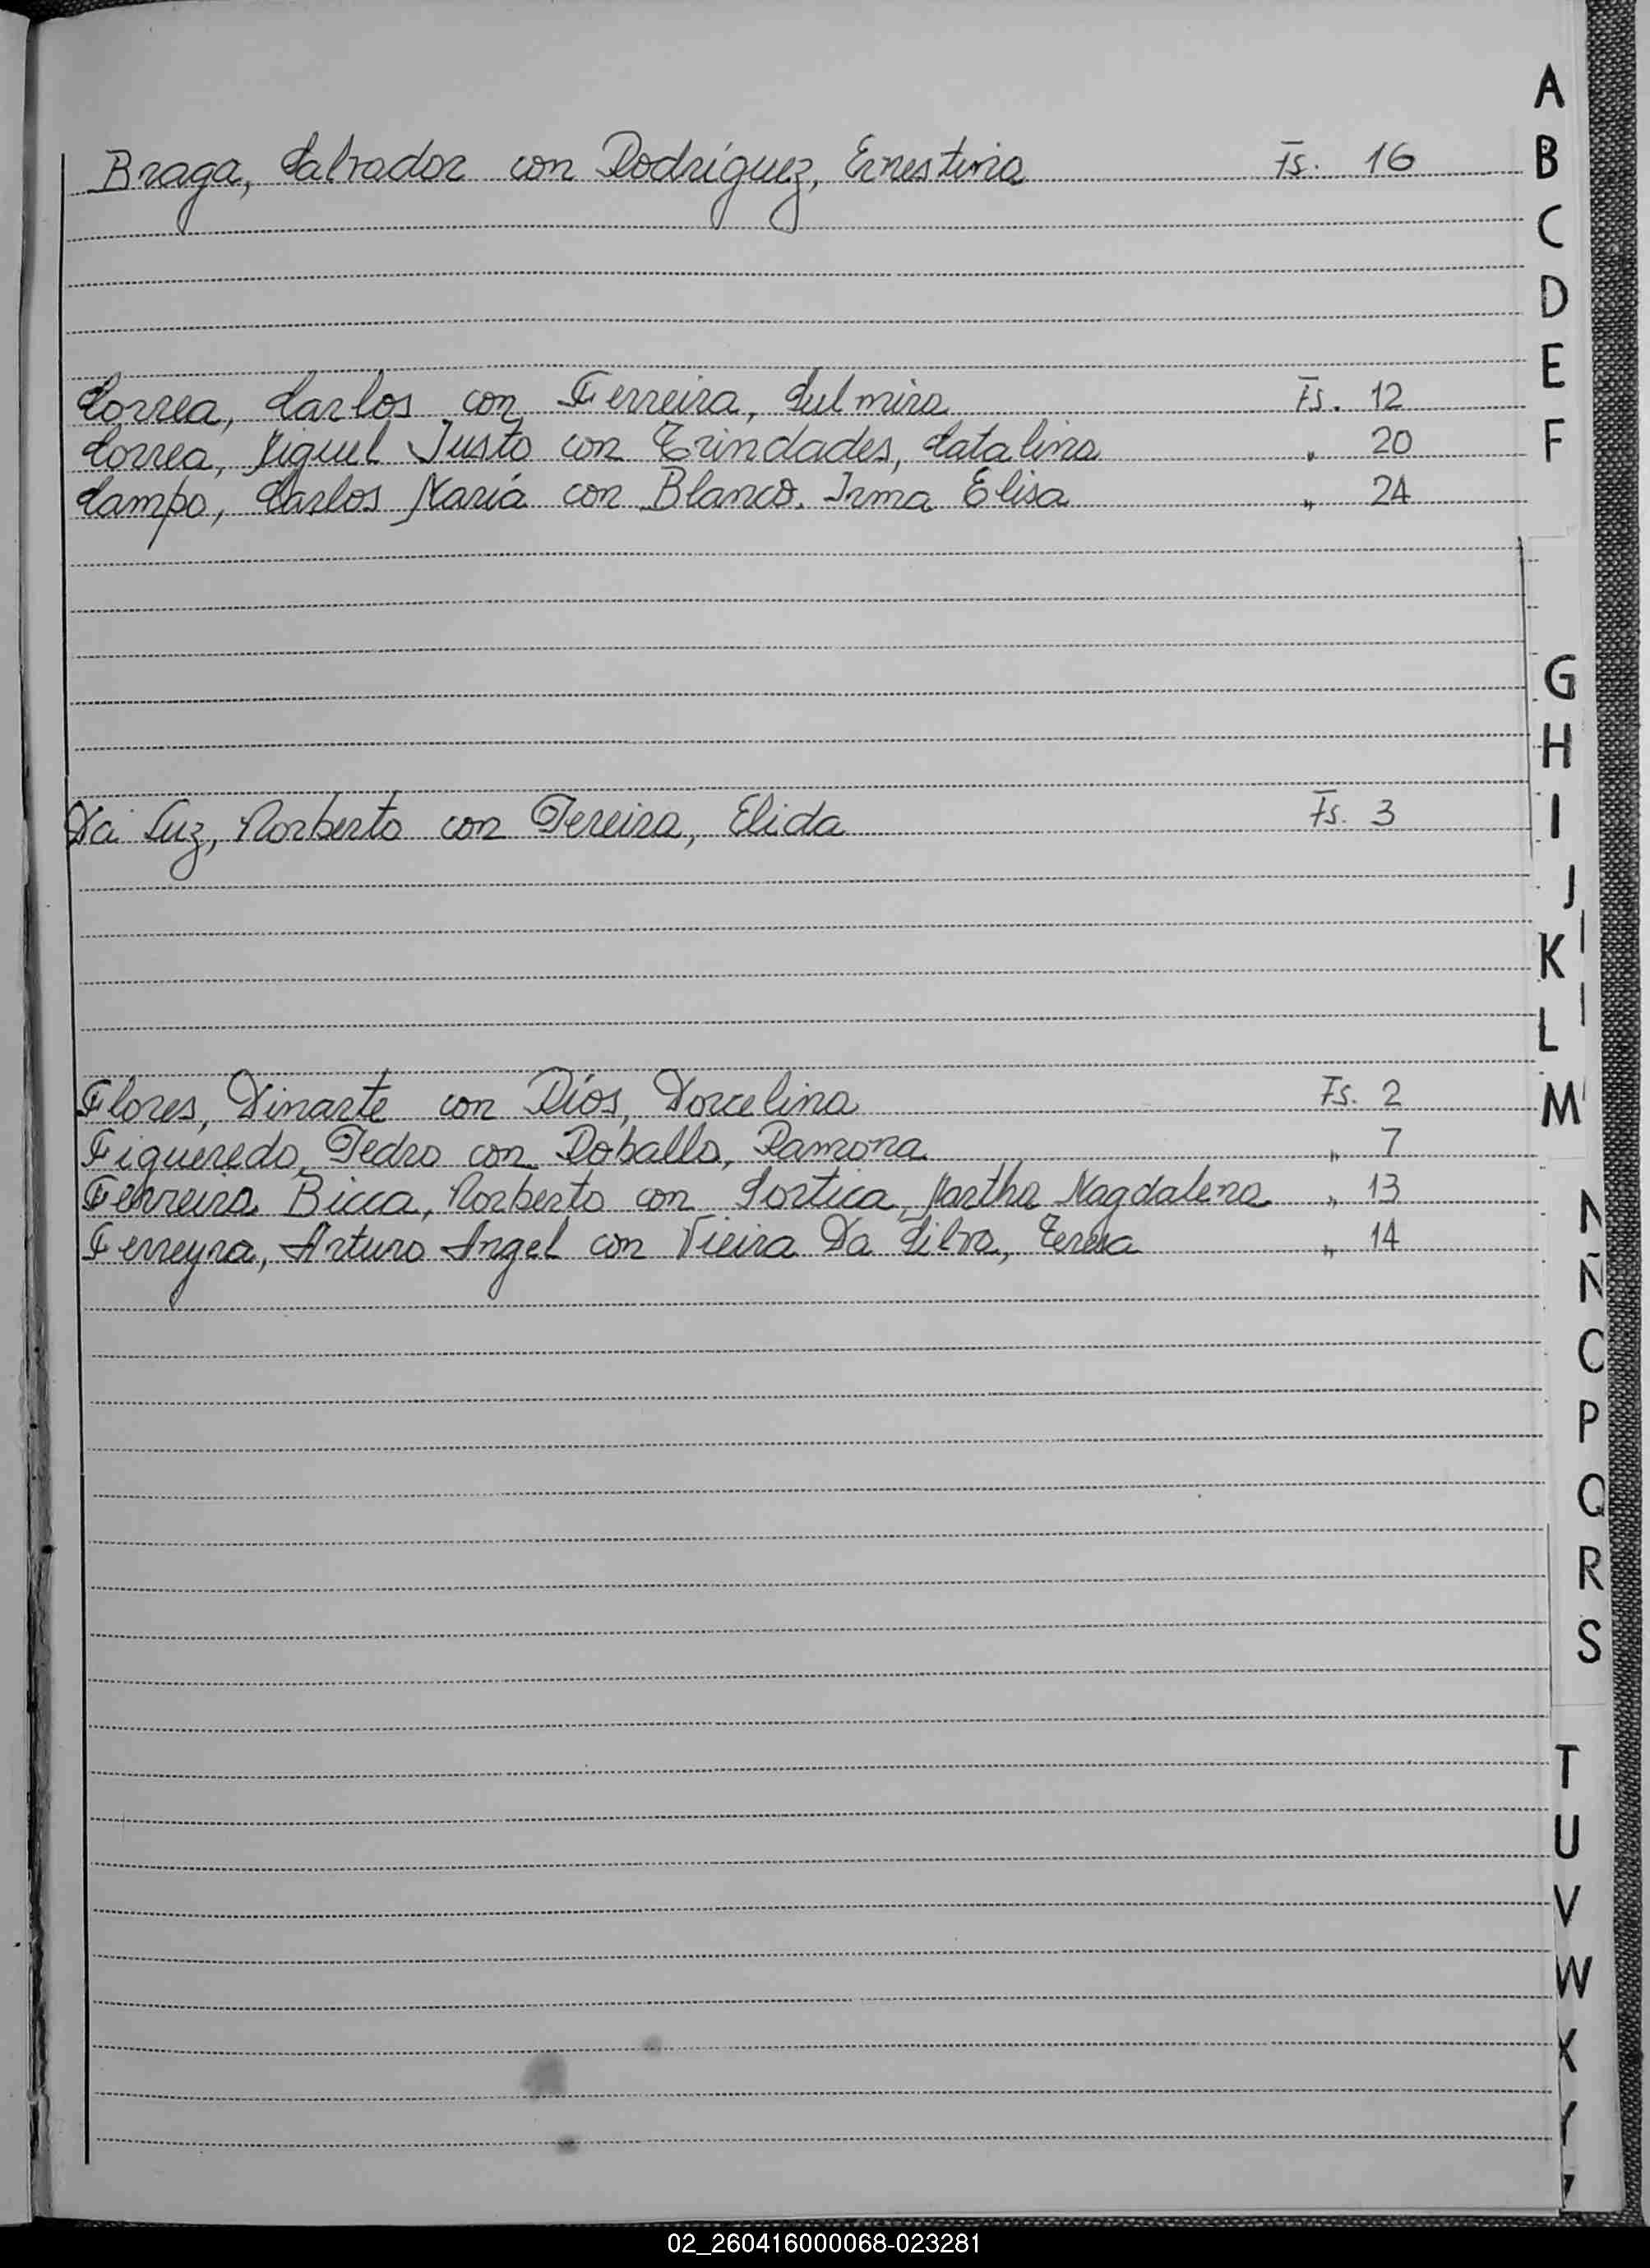 A
Braga, Salvador con Rodríguez, Ernestina Fs. 16 B
C
D
E
Correa, Carlos con Ferreira, Sulmira Fs. 12
Correa, Miguel Justo con Trindades, Catalina " 20 F
Campo, Carlos María con Blanco, Irma Elisa " 24
G
H
Da Luz, Norberto con Pereira, Elida Fs. 3 I
J
K
L
Flores, Dinarte con Ríos, Dorcelina Fs. 2 M
Figueredo, Pedro con Roballo, Ramona " 7
Ferreira Bicca, Norberto con Sortica, Martha Magdalena " 13 N
Ferreyra, Arturo Angel con Vieira Da Silva, Teresa " 14
Ñ
O
P
Q
R
S
T
U
V
W
X
Y
Z
02_260416000068-023281